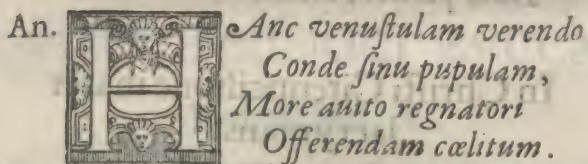 An. HAnc venuſtulam verendo
Conde ſinu pupulam,
More auito regnatori
Offerendam cœlitum.